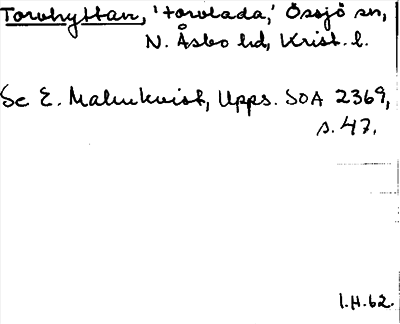 Torvhyttan, 'torvlada,' Össjö sn,
N. Åsbo hd, Krist. l.
Se E. Malmkvist, Upps. SOA 2369,
s. 47.
I.H. 62.